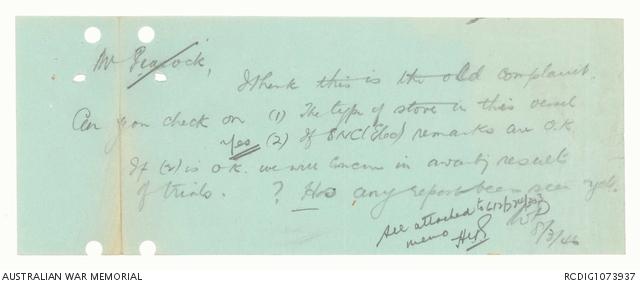 Mr Peacock,
I think this is the old complaint.
Can you check on (1) The type of stove in this vessel
yes (2) If SNC( ) remarks are O.K.
If (2) is O.K. we will concur in await results
of trials. ? Has any report been seen yet.
See attached to
memo
8/3/46
AUSTRALIAN WAR MEMORIAL
RCDIG1073937